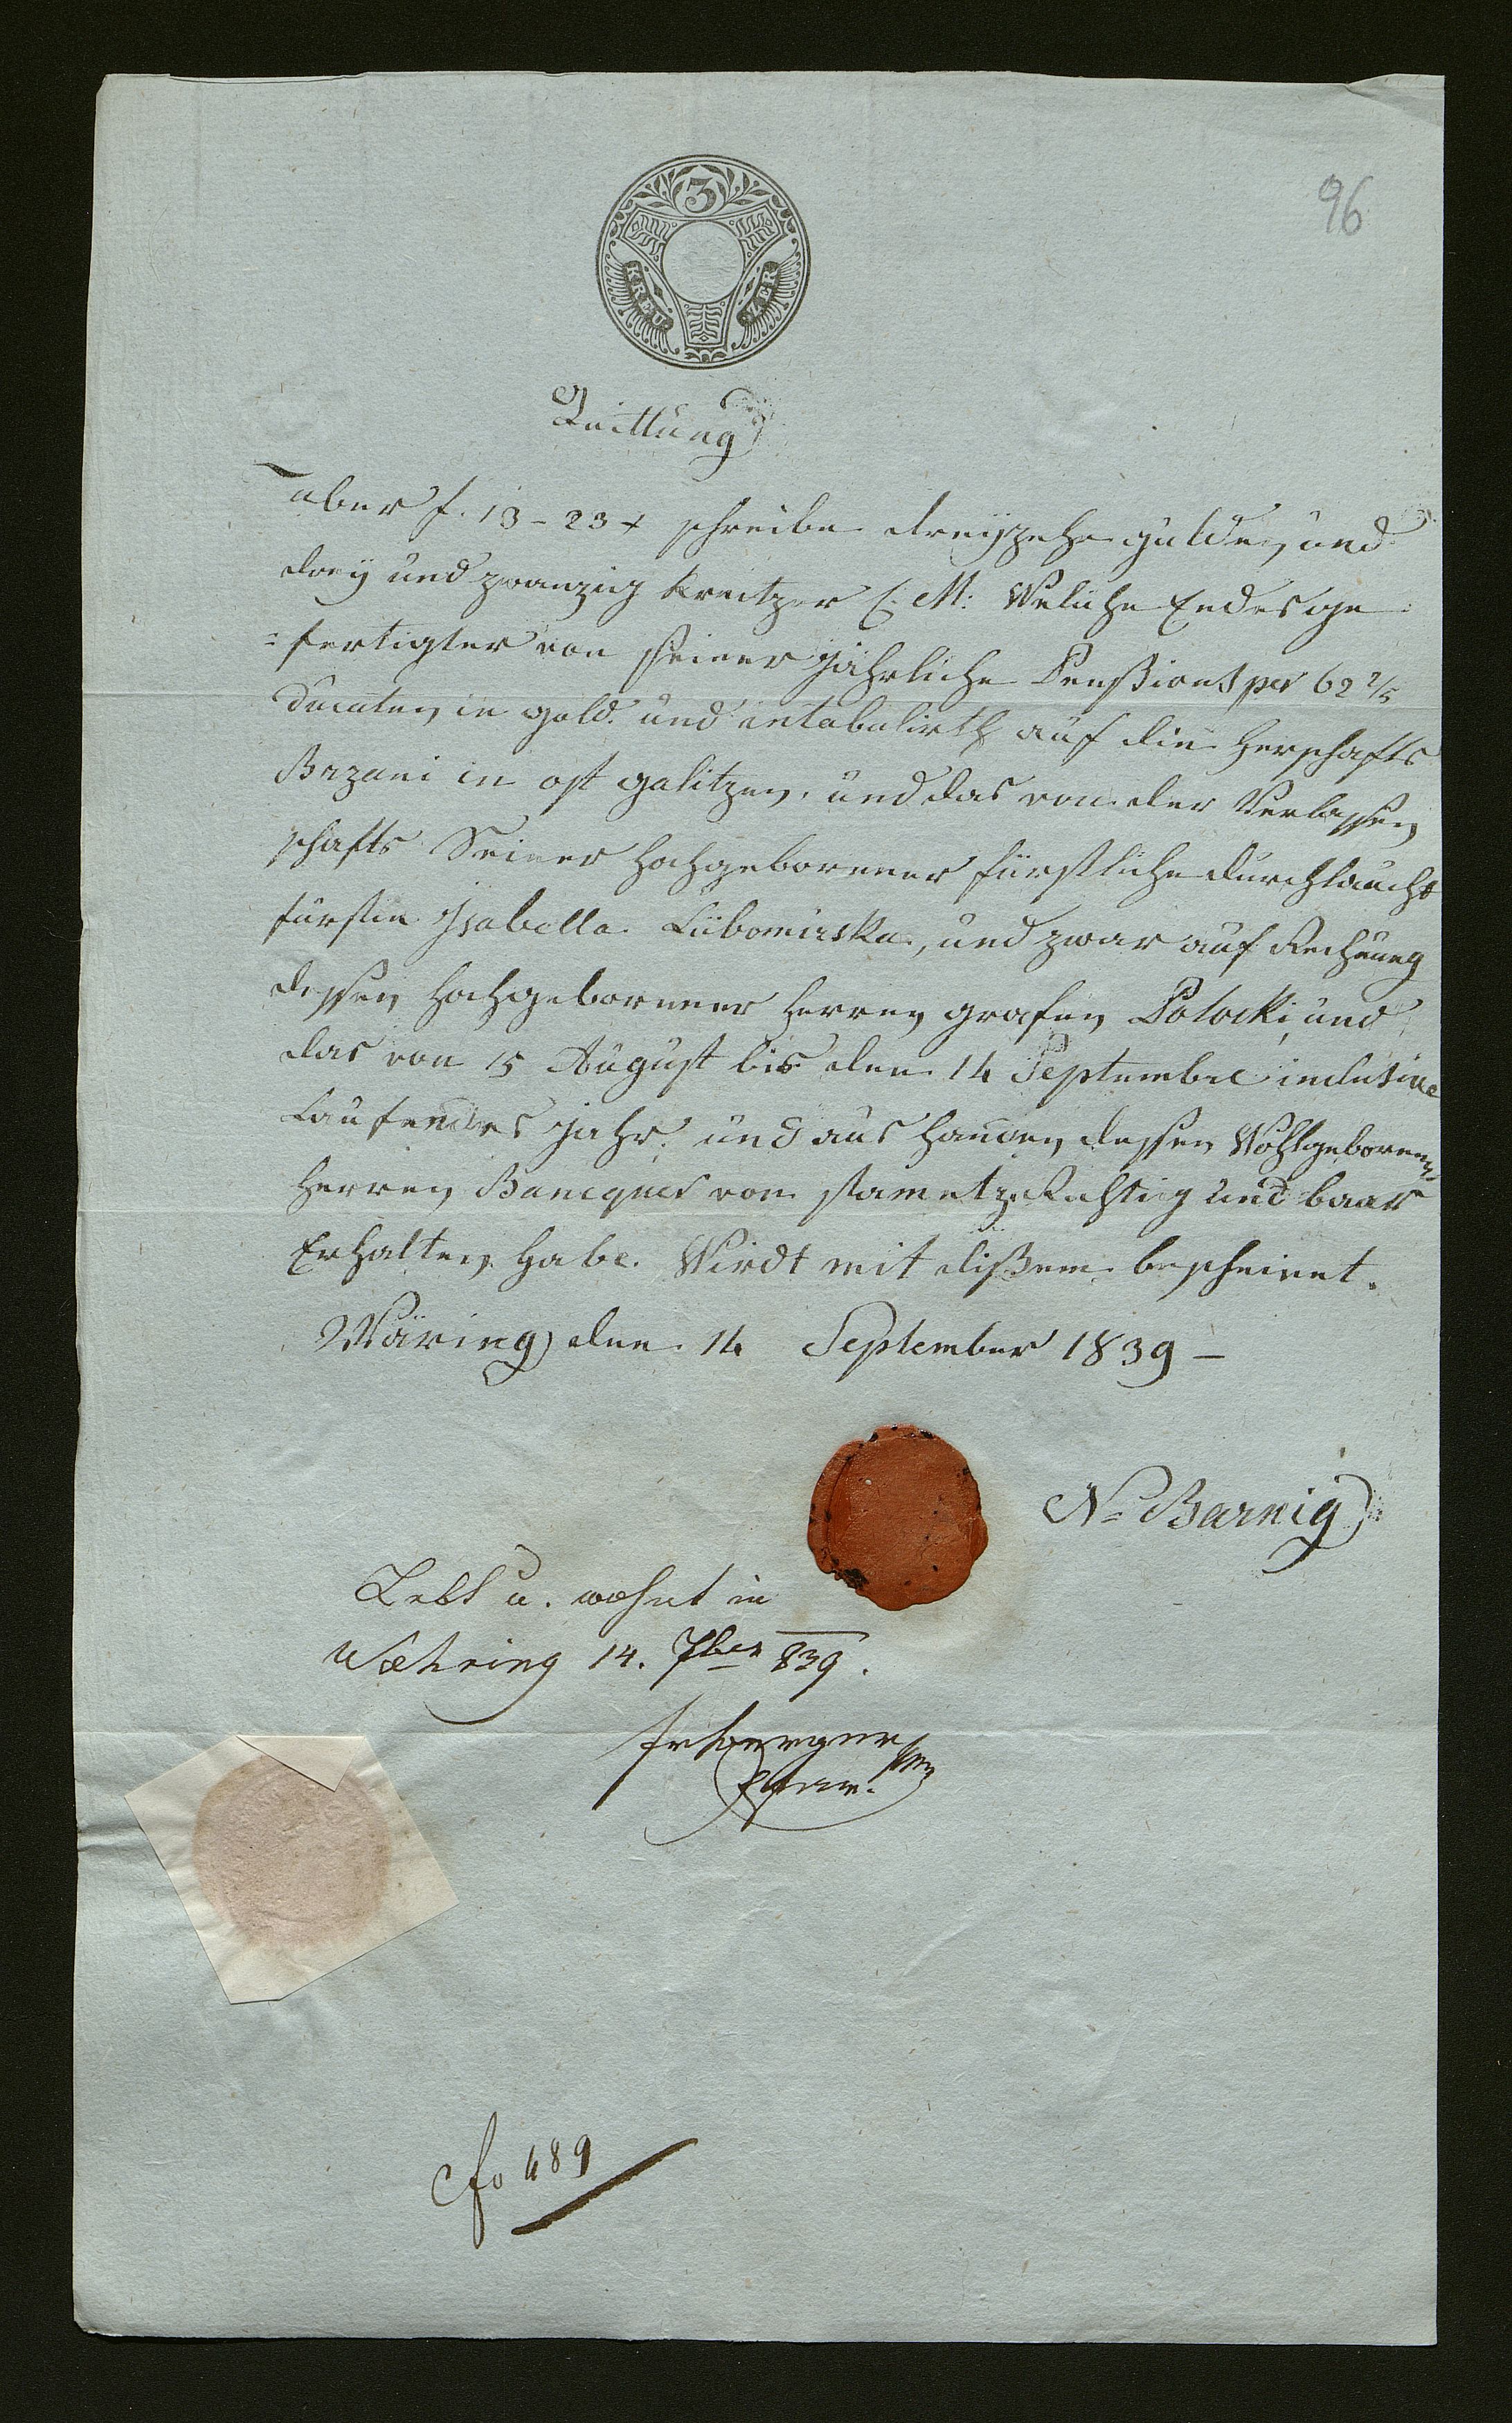 96
3
KREUZER
Quittung
über f. 13-23 x schreibe dreyzehn gulden, und
drey und zwanzig Kreitzer C: M: Weliche Endesge=
=fertigter von seiner jährliche Penßion per 62 2/5
Ducaten in gold. und intabulirth auf die Herschafts
Brzani in ost galitzen. und das von der Verlassen
schafts Seiner Hochgeborner fürstliche durchlaucht
fürstin Isabella Lubomirska, und zwar auf Rechnung
dessen Hochgeborner Herren grafen Potocki, und
das von 15 August bis den 14 Septembre inclusive
Laufendes jahr: und aus Handen dessen Wohlgeborenen
Herren Bancquer von Stametz Richtig und baar
Erhalten Habe. Wirdt mit dißem bescheinet.
Wäring den 14 September 1839 -
N= Barnig
Lebt u. wohnt in
Wæhring 14. 7ber 839.
Pfarr.
fo 489